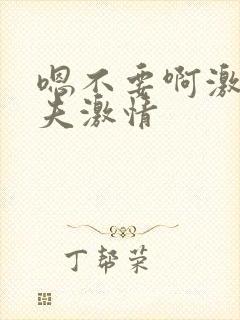 嗯不要啊激
夫激情
丁帮荣